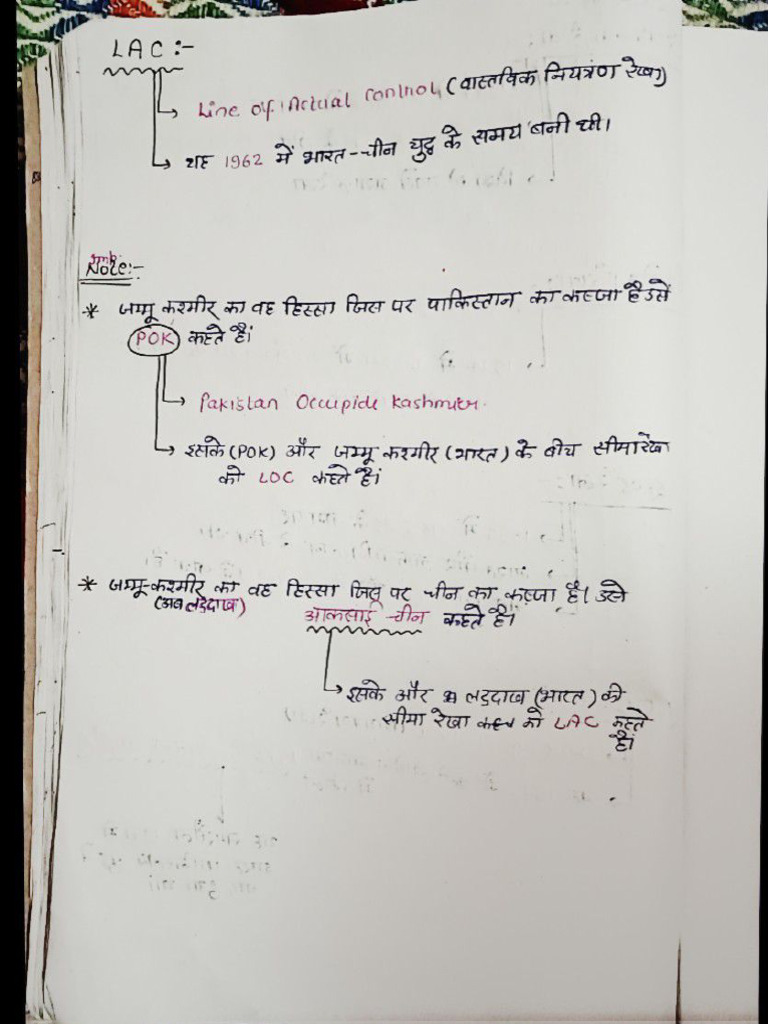 LAC :-
Line of Actual Control (वास्तविक नियंत्रण रेखा)
यह 1962 में भारत-चीन युद्ध के समय बनी थी।
Imp.
Note:-
* जम्मू कश्मीर का वह हिस्सा जिस पर पाकिस्तान का कब्जा है उसे
POK कहते हैं।
Pakistan Occupide Kashmir.
इसके (POK) और जम्मू कश्मीर (भारत) के बीच सीमारेखा
को LOC कहते हैं।
* जम्मू-कश्मीर का वह हिस्सा जिस पर चीन का कब्जा है। उसे
(अब लद्दाख) आकसाई-चीन कहते है।
इसके और लद्दाख (भारत) की
सीमा रेखा को LAC कहते
हैं।